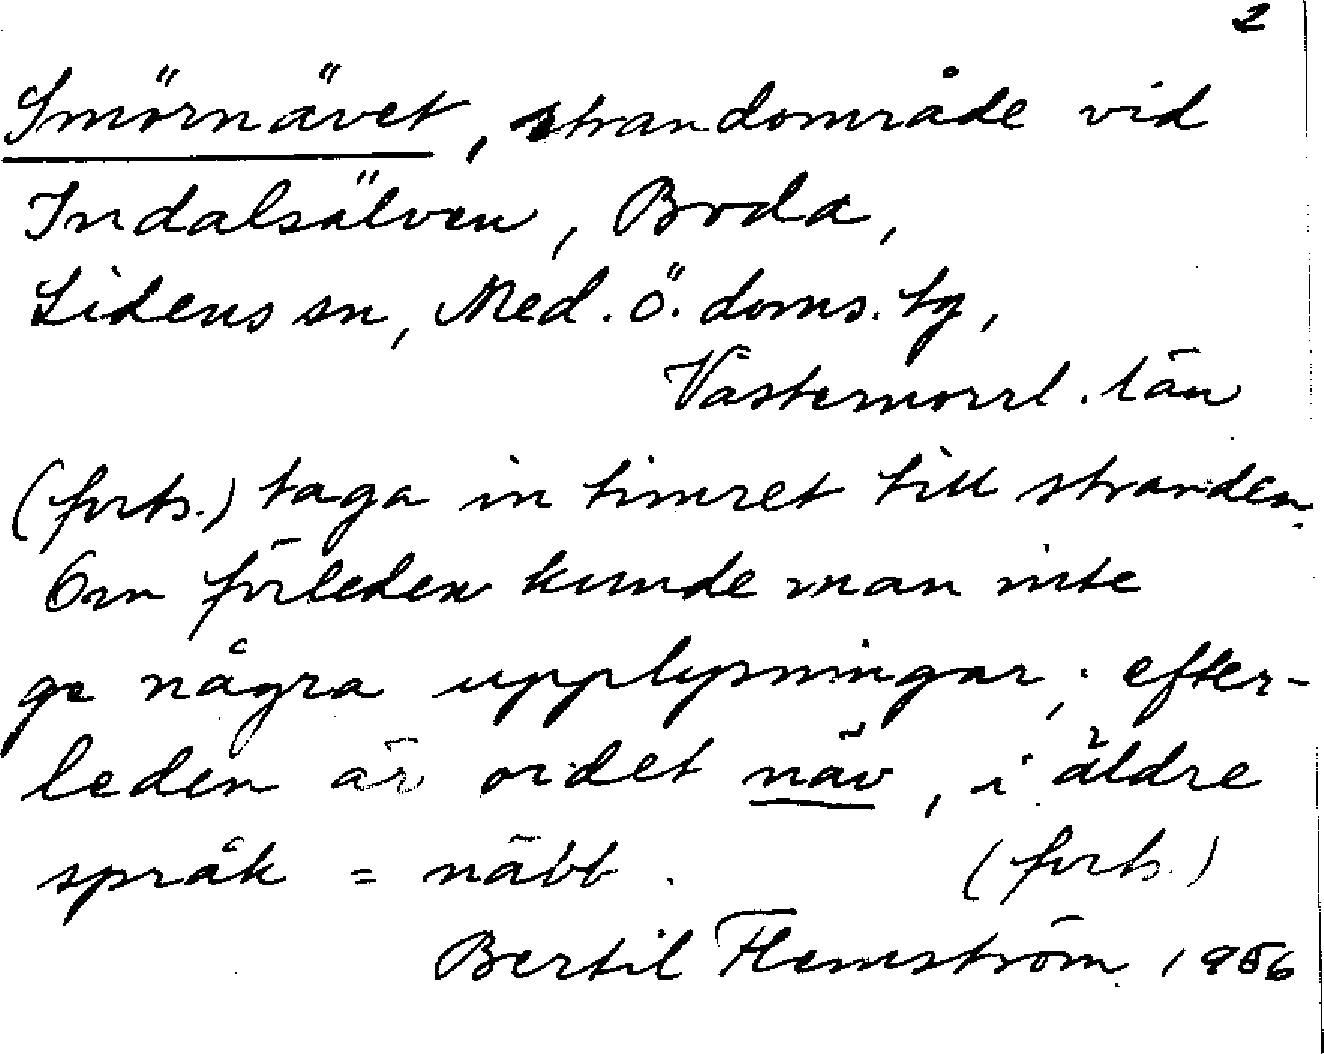 2
Smörnävet, strandområde vid
Indalsälven, Boda,
Lidens sn, Med. Ö. doms. tg,
Västernorrl. län
(forts.) taga in timret till stranden.
Om förleden kunde man inte
ge några upplysningar; efter-
leden är ordet näv, i äldre
språk = näbb. (forts.)
Bertil Flemström 1956